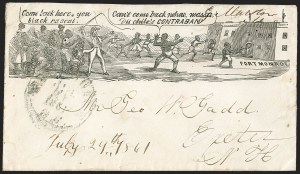 Come back here, you
black rascal.
Can't come back nohow, massa;
Dis chile's CONTRABAN'
FORT MONROE
Mr Geo W. Gadd
Exeter
N. H.
July 29th 1861